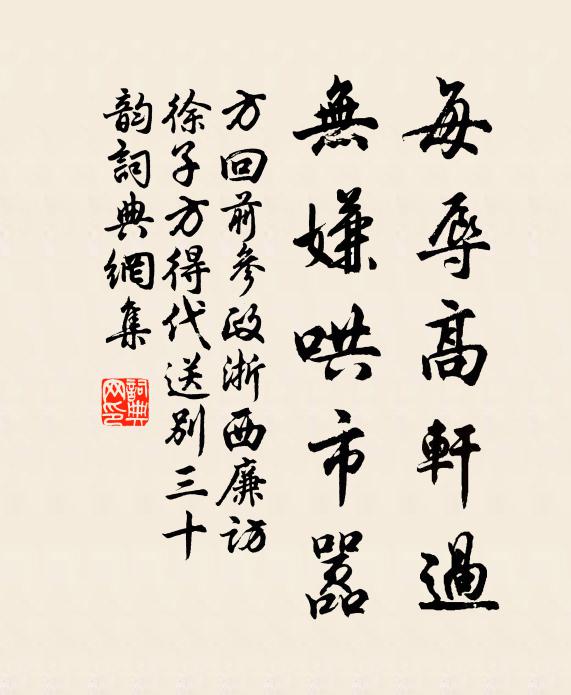 每辱高軒過
無嫌哄市嚣
方回前參政浙西廉訪
徐子方得代送別三十
韵詞典網集
詞典网印